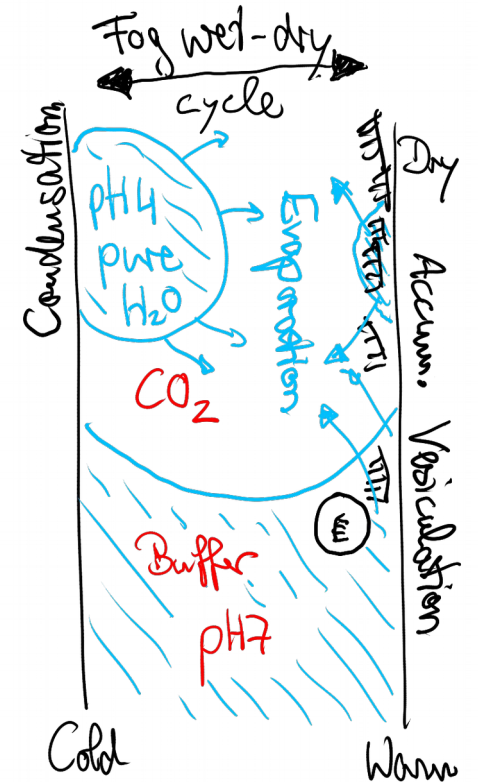 Fog wet-dry
cycle
Condensation
pH4
pure
H₂O
Evaporation
Dry Accum. Vesiculation
CO₂
Buffer
pH7
Cold
Warm